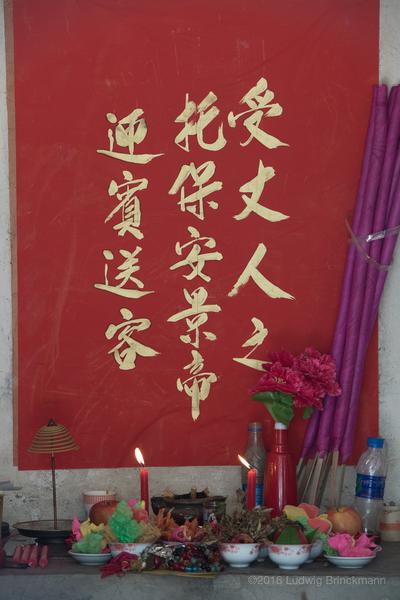 受丈人之
托保安景帝
迎賓送客
©2016 Ludwig Brinckmann